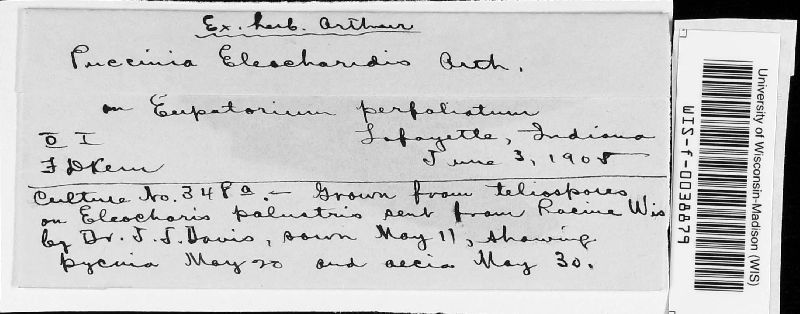 Ex. herb. Arthur
Puccinia Eleocharidis Arth.
on Eupatorium perfoliatum
O I Lafayette, Indiana
F D Kern June 3, 1908
Culture No. 348a. – Grown from teliospores
on Eleocharis palustris sent from Racine Wis
by Dr. J. J. Davis, sown May 11, showing
pycnia May 20 and aecia May 30.
University of Wisconsin-Madison (WIS)
WIS-f-0038879